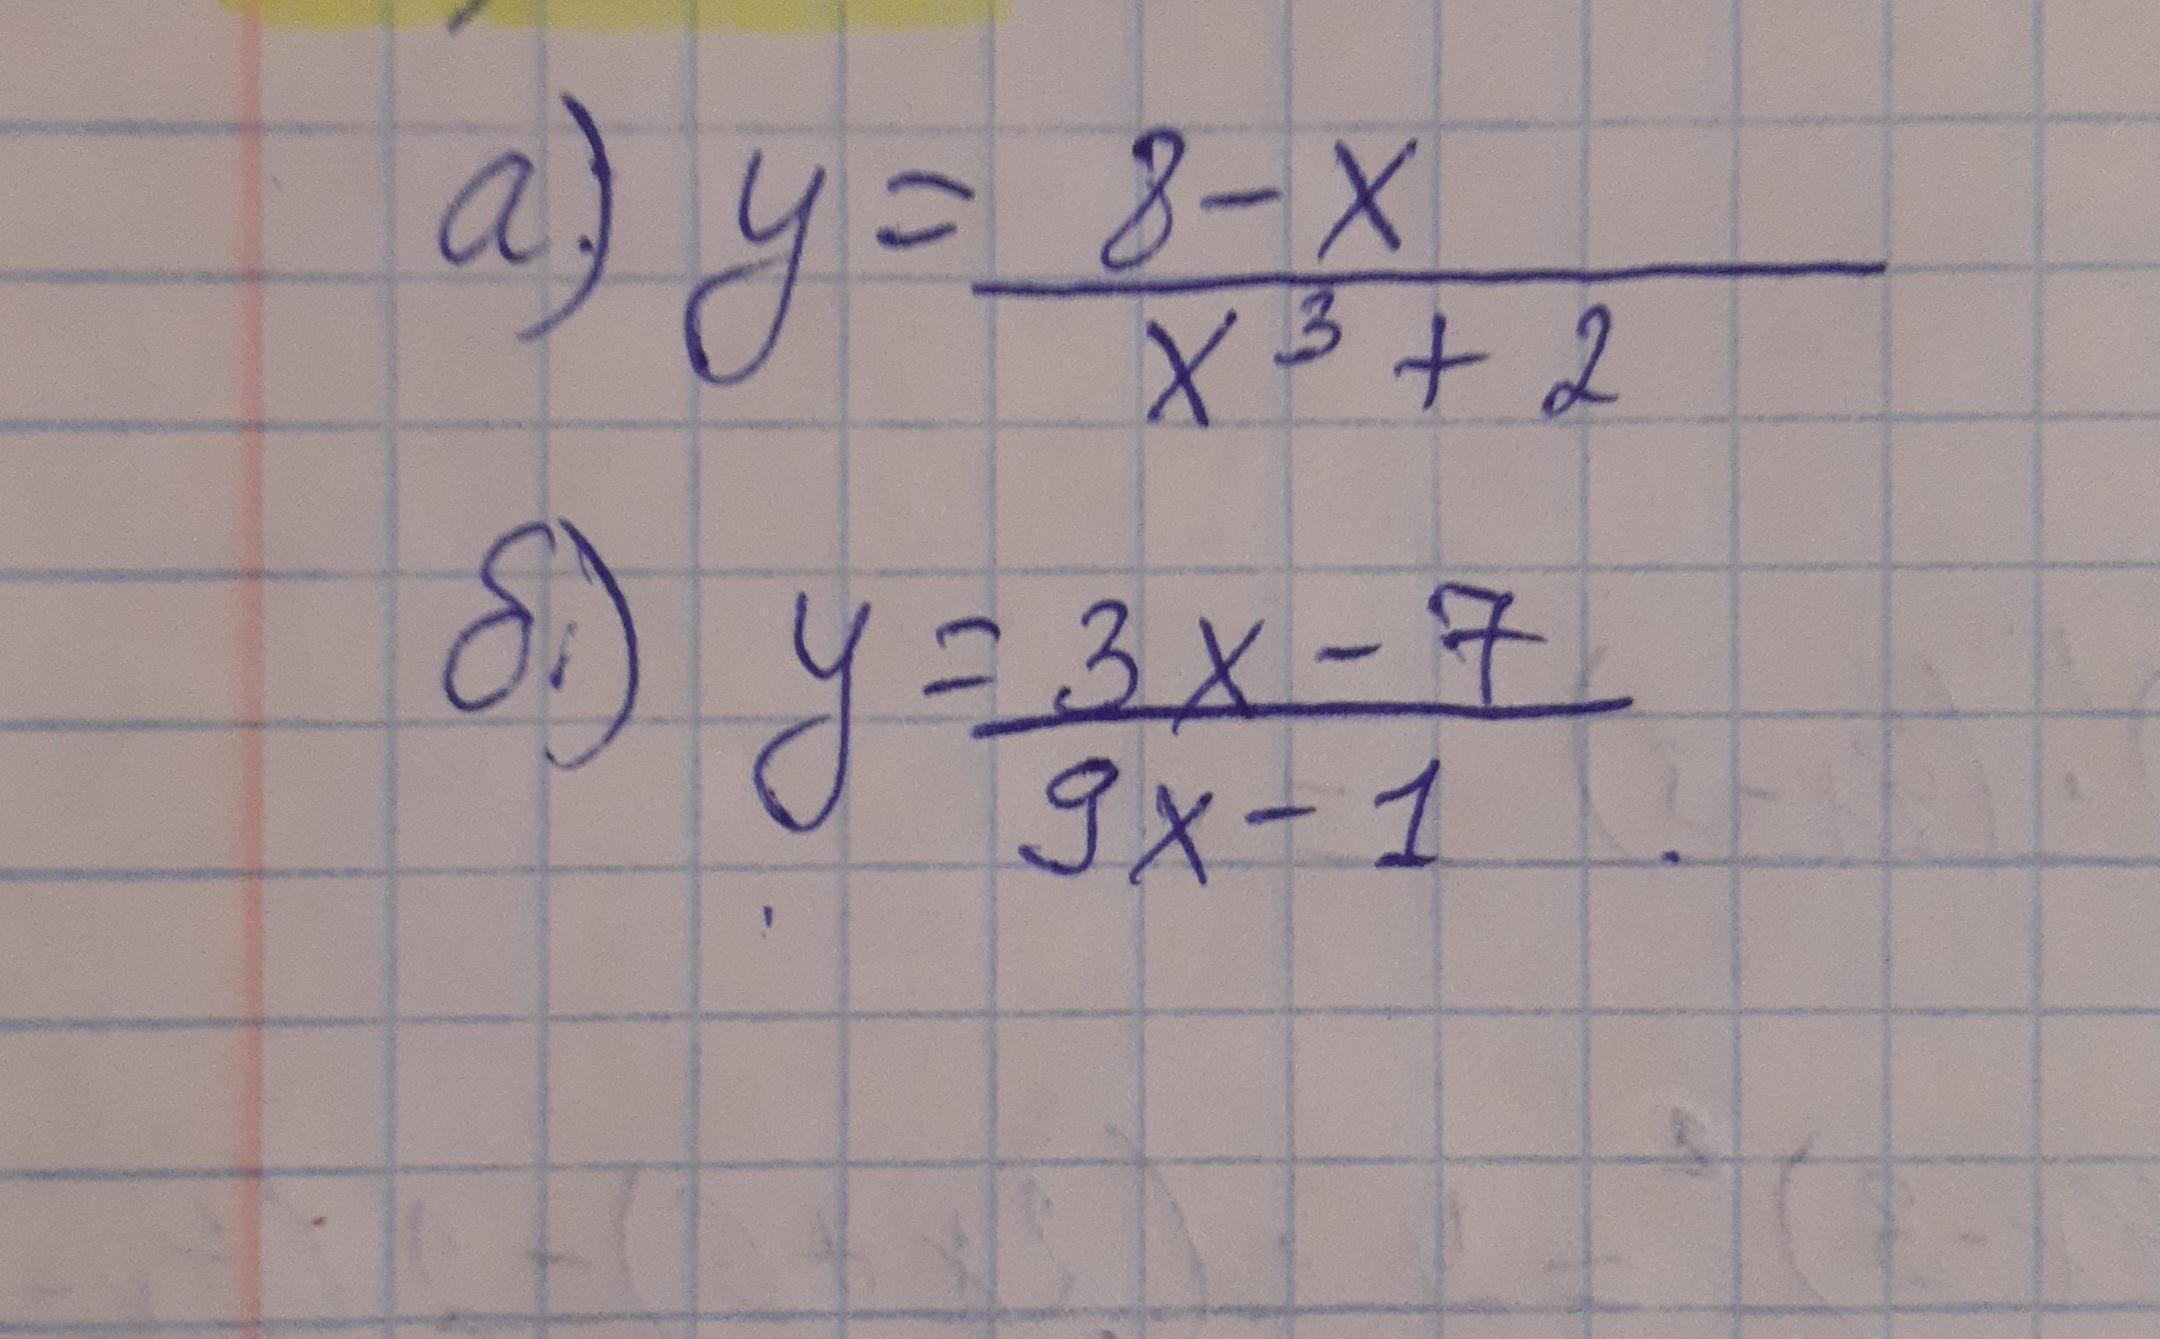 а.) y = 8 - x
x³ + 2
б.) y = 3x - 7
9x - 1 .